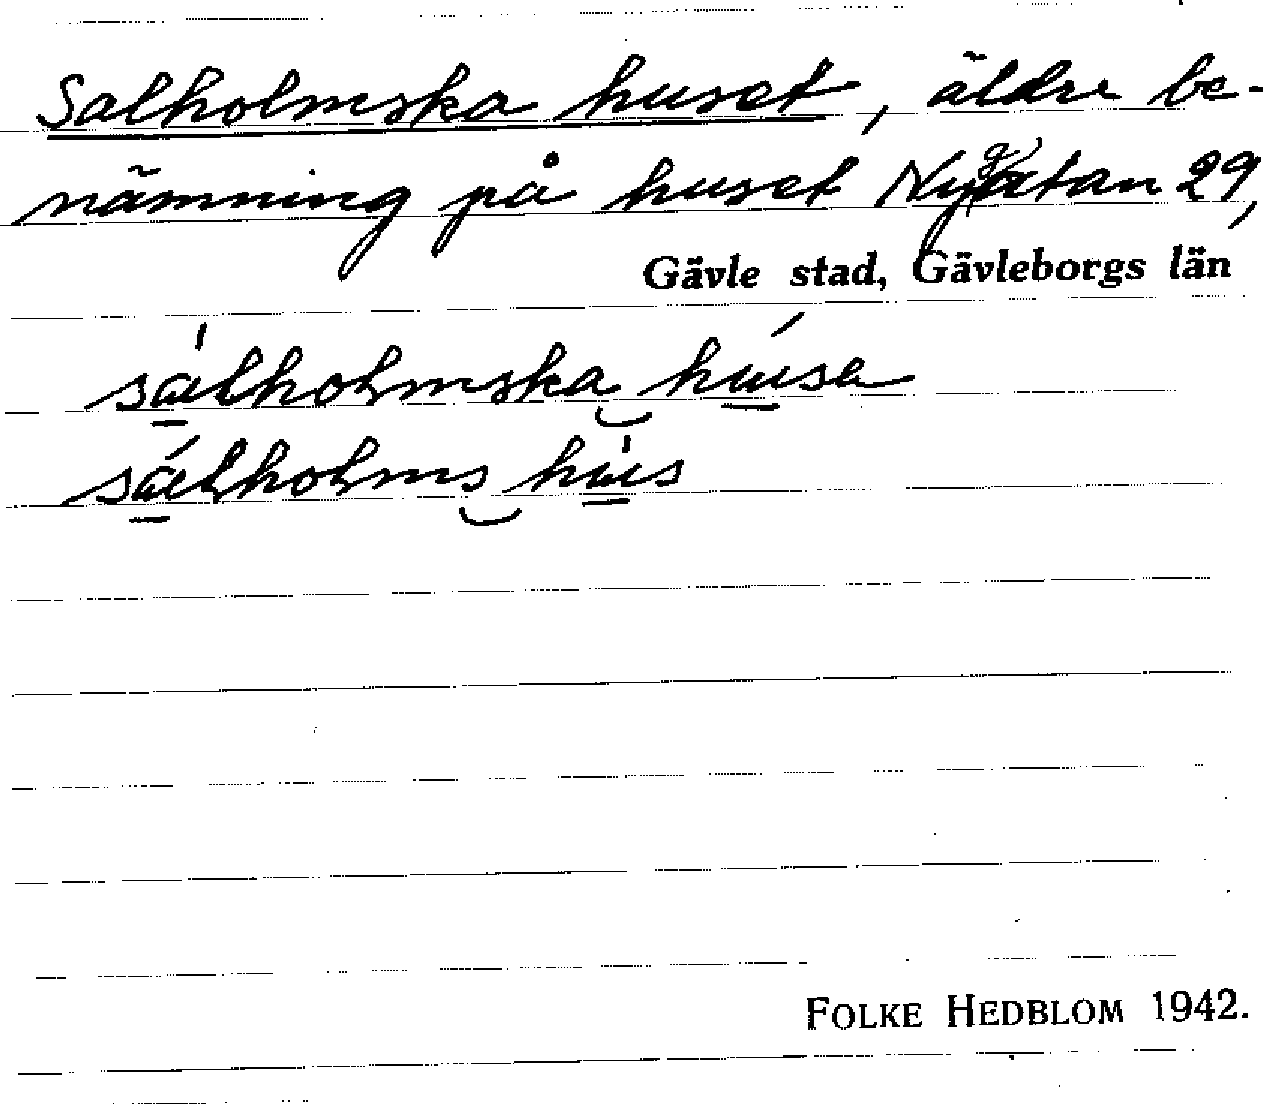 Salholmska huset, äldre be-
nämning på huset Nygatan 29,
Gävle stad, Gävleborgs län
sàlholmska húsa
sálholms hùs
FOLKE HEDBLOM 1942.